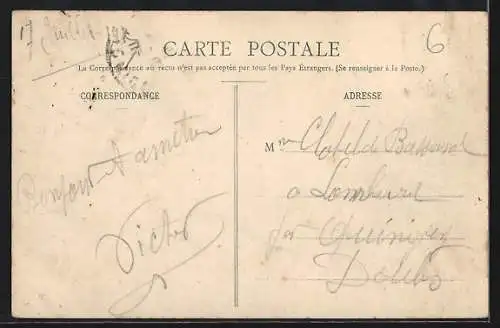 17 Juillet
6
CARTE POSTALE
La Correspondance au recto n'est pas acceptée par tous les Pays Étrangers. (Se renseigner à la Poste.)
CORRESPONDANCE
ADRESSE
Victor
Mme Clotilde
à Lombard
par Quingey
Doubs